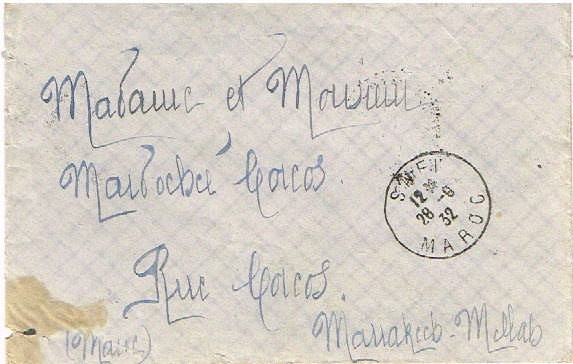 Madame et Monsieur
Mardochée Corcos
Rue Corcos.
Marrakech-Mellah
(Maroc)
SAFFI
12 *
28 -9
32
MAROC